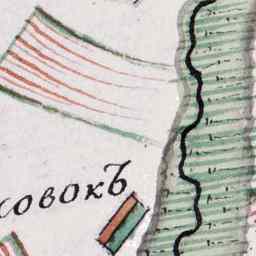 совокЪ